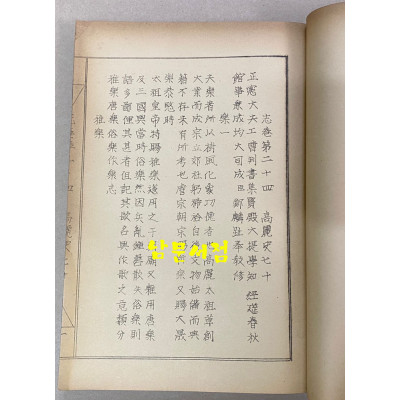 志卷第二十四 高麗史七十
正憲大夫工曹判書集賢殿大提學知 經筵春秋
館事兼成均大司成臣鄭麟趾奉敎修
樂一
夫樂者所以樹風化象功德者也高麗太祖草創
大業而成宗立郊社躬禘祫自後文物始備而典
籍不存未有所考也睿宗朝宋賜新樂又賜大晟
樂恭愍時
太祖皇帝特賜雅樂遂用之于廟又雜用唐樂
及三國與當時俗樂然因兵亂鍾磬散失俗樂則
語多鄙俚其甚者但記其歌名與作歌之意類分
雅樂唐樂俗樂作樂志
雅樂
高麗史七十
남문서점